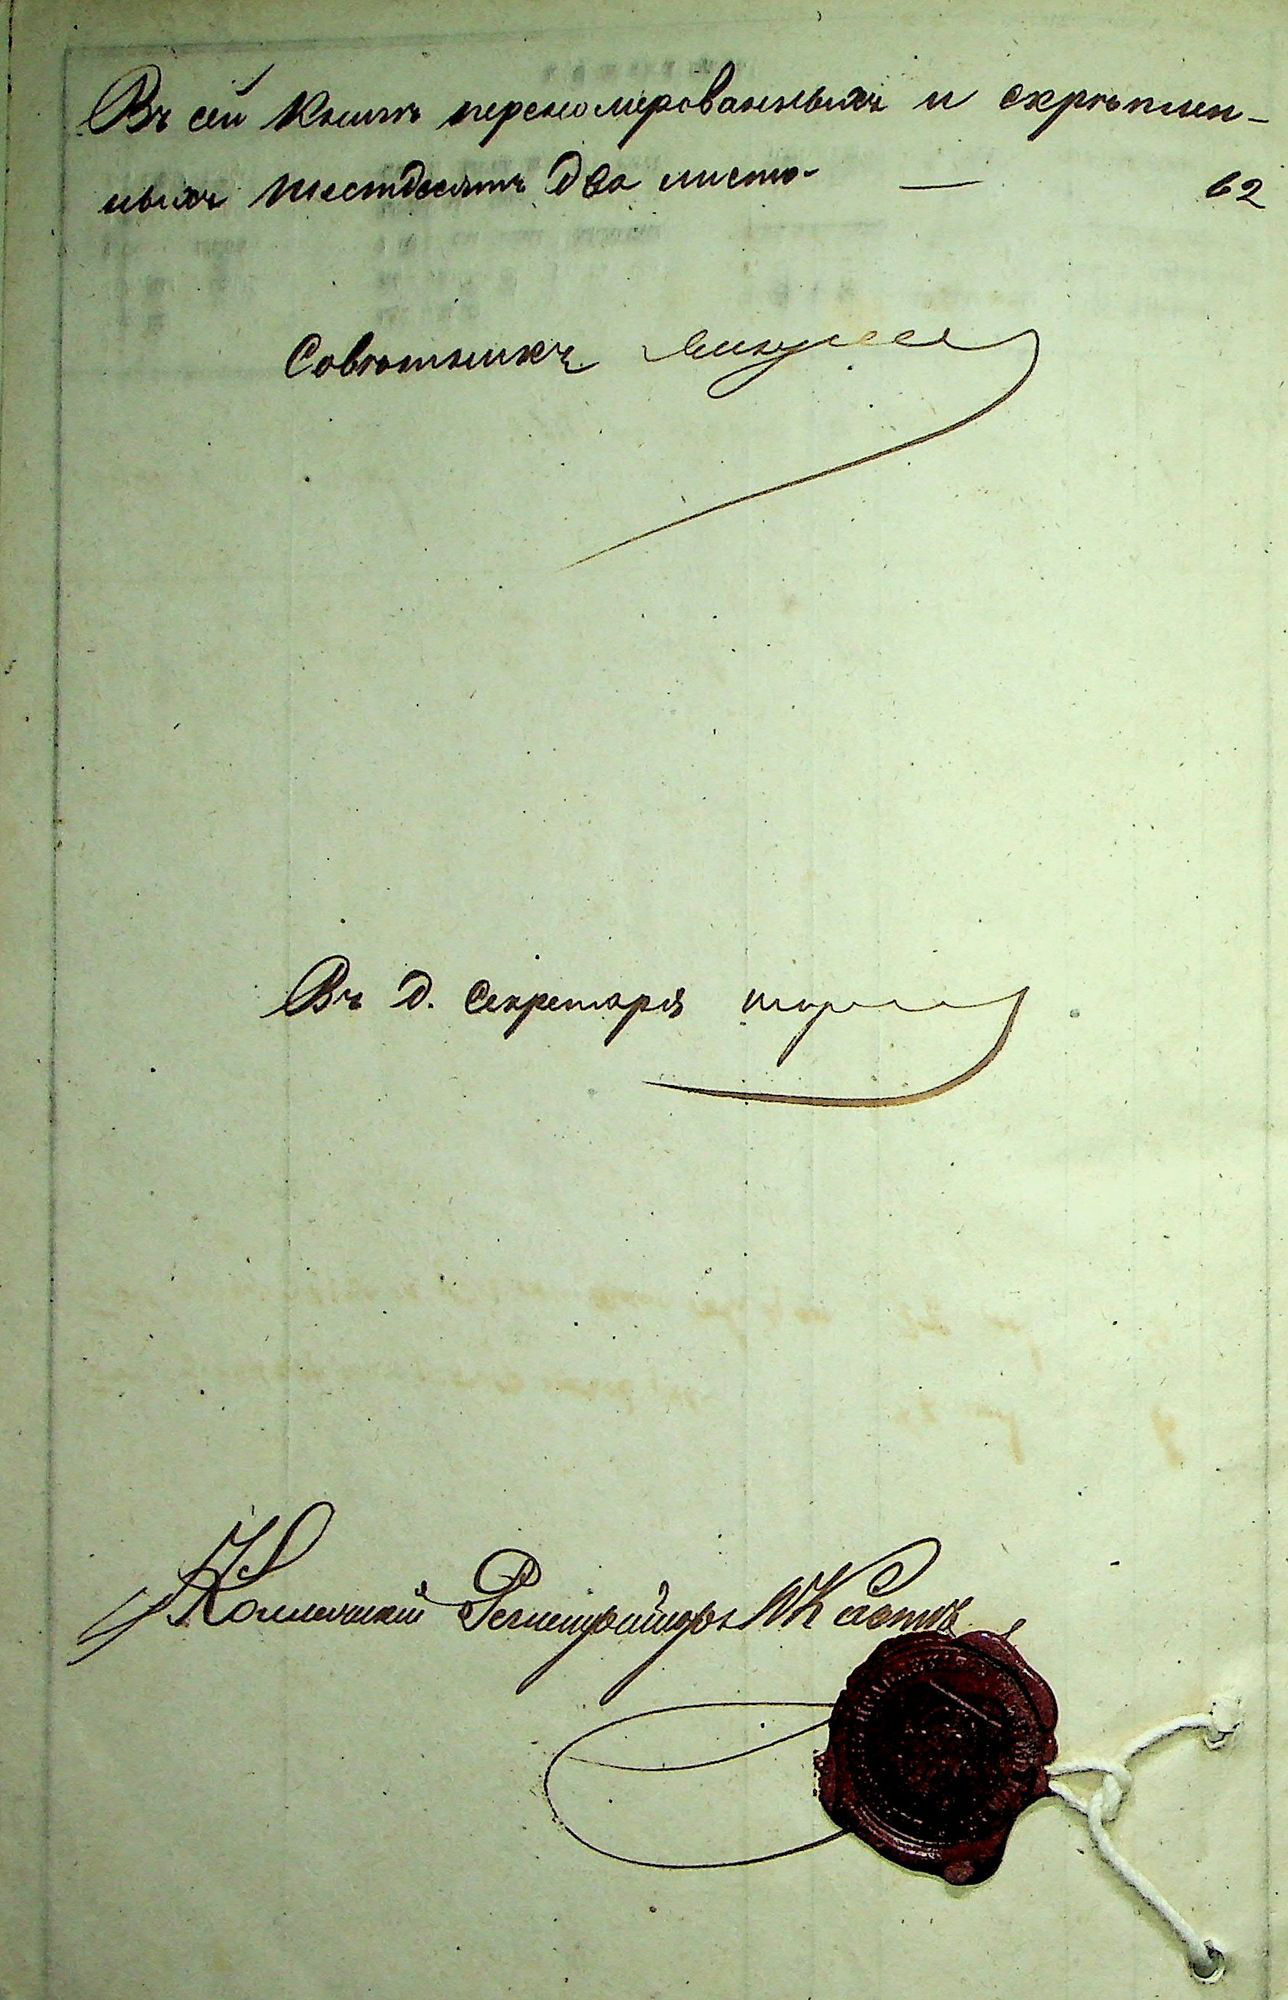 Въ сей Книгѣ перенумерованныхъ и скрѣплен-
ныхъ шестдесятъ два листа — 62
Совѣтникъ
Въ д. Секретаря
Коллежскій Регистраторъ